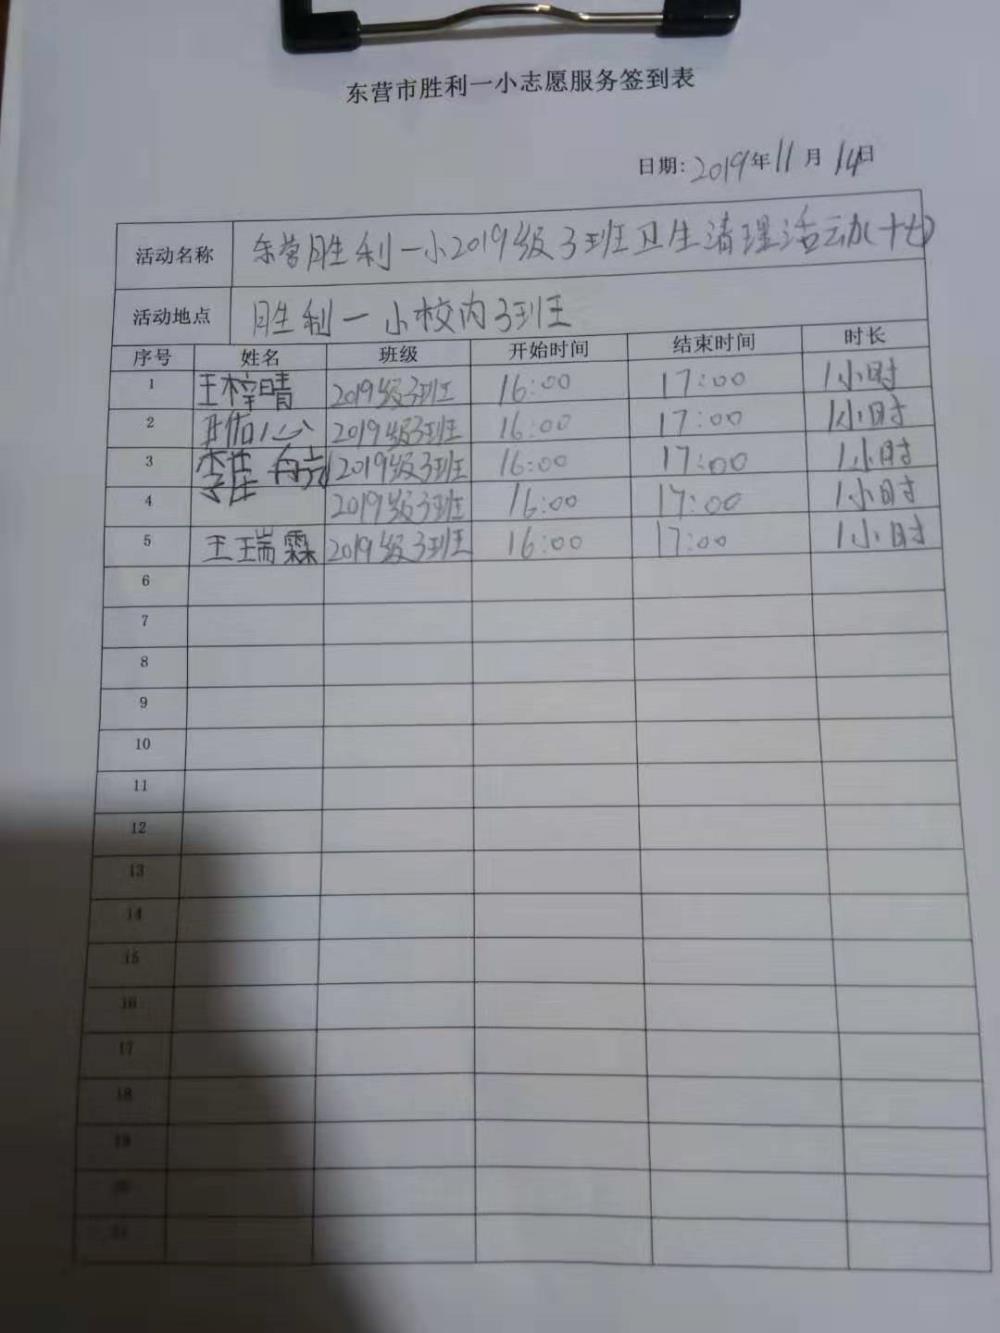 东营市胜利一小志愿服务签到表
日期: 2019年11月14日
活动名称 东营胜利一小2019级3班卫生清理活动(十七)
活动地点 胜利一小校内3班
序号 姓名 班级 开始时间 结束时间 时长
1 王梓晴 2019级3班 16:00 17:00 1小时
2 2019级3班 16:00 17:00 1小时
3 2019级3班 16:00 17:00 1小时
4 2019级3班 16:00 17:00 1小时
5 王瑞霖 2019级3班 16:00 17:00 1小时
6
7
8
9
10
11
12
13
14
15
16
17
18
19